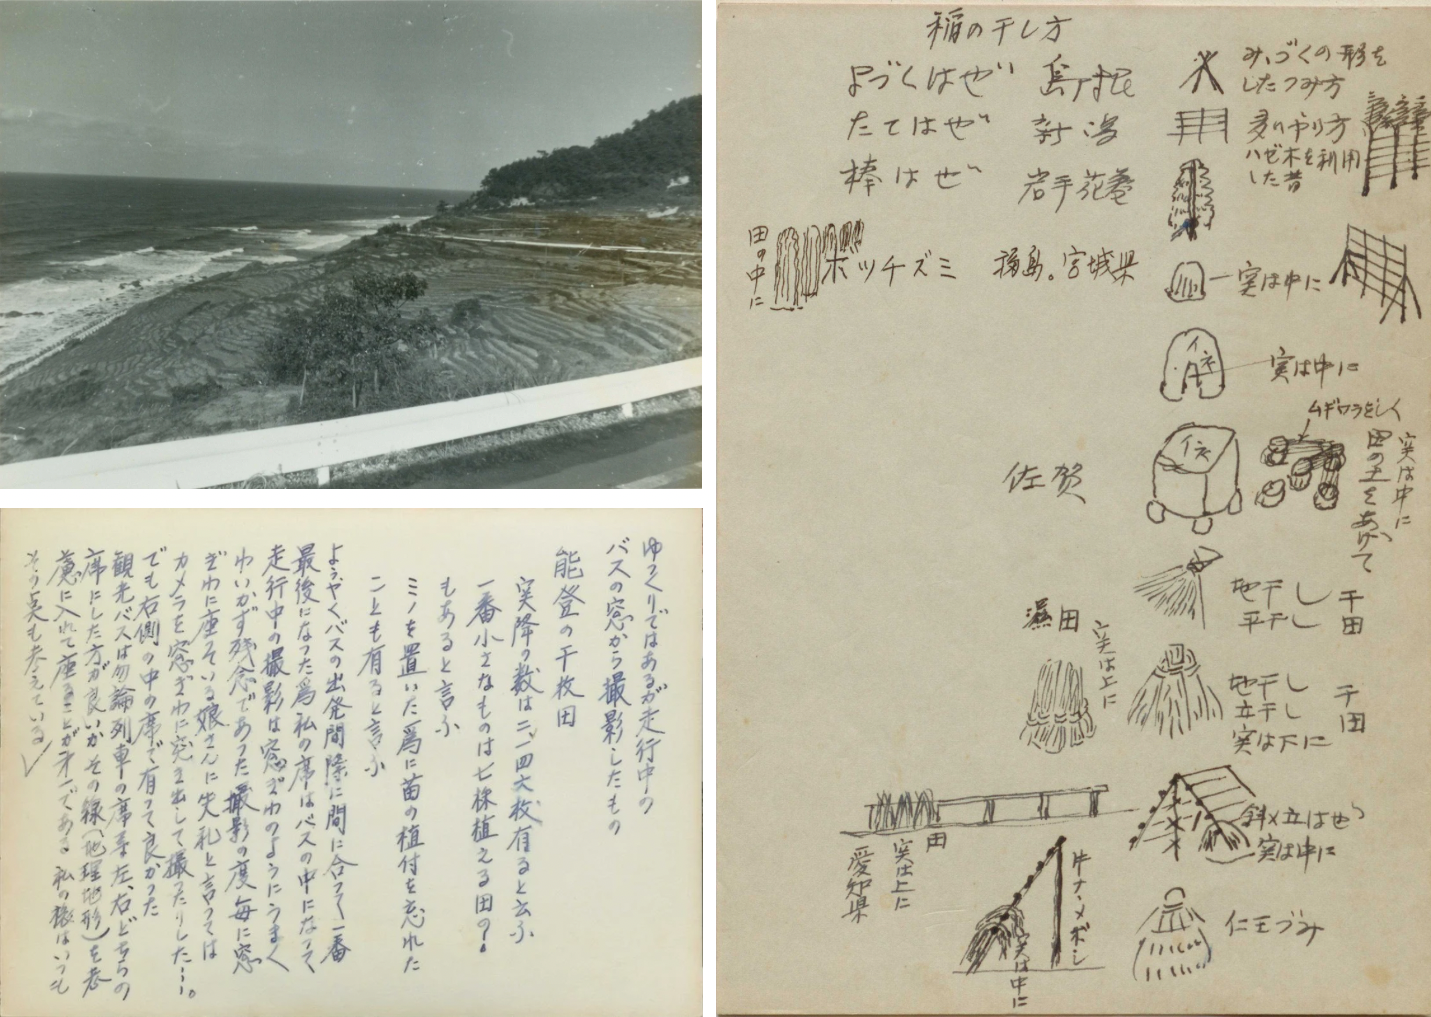 ゆっくりではあるが走行中の
バスの窓から撮影したもの
能登の千枚田
実際の数は二、一四六枚有ると云ふ
一番小さなものは七株植える田の?
もあると言ふ
ミノを置いた為に苗の植付を忘れた
ことも有ると言ふ
ようやくバスの出発間際に間に合って一番
最後になった為私の席はバスの中になって
走行中の撮影は窓ぎわのようにうまく
ゆいかず残念であった撮影の度毎に窓
ぎわに座ている娘さんに失礼と言っては
カメラを窓ぎわに突き出して撮ったりした…。
でも右側の中の席で有って良かった
観光バスは勿論列車の席も左、右どちらの
席にした方が良いかその線(地理地形)を考
慮に入れて座ることが第一である 私の旅はいつも
その点も考えている
稲の干し方
よづくはぜ 島根
みゝづくの形を
したつみ方
たてはぜ 新潟
多いやり方
ハゼ木を利用
した昔
棒はぜ 岩手花巻
田の中に
ホッチズミ 福島。宮城県
実は中に
実は中に
ムギワラをしく
佐賀
実は中に
田の土をあげて
地干し
平干し
干田
濕田
実は上に
地干し
立干し
実は下に
干田
田
実は上に
愛知県
斜め立はぜ
実は中に
片ナヽメボシ
実は中に
仁王づみ